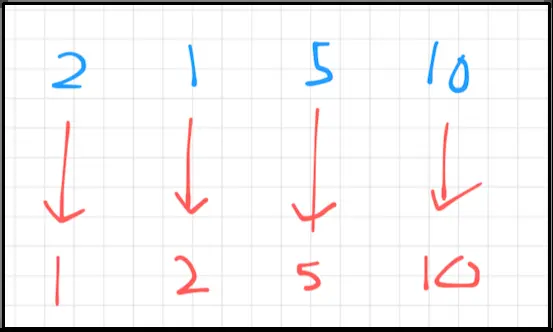 2 1 5 10
1 2 5 10